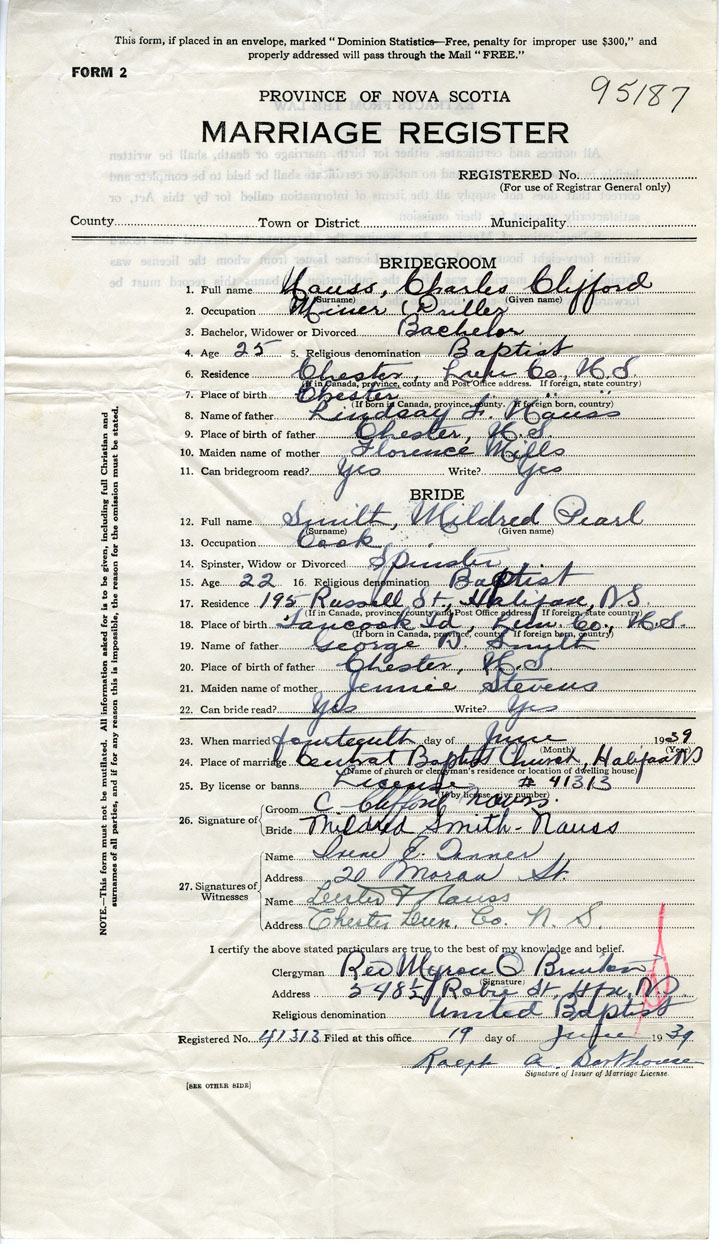 This form, if placed in an envelope, marked "Dominion Statistics—Free, penalty for improper use $300," and
properly addressed will pass through the Mail "FREE."
FORM 2
95187
PROVINCE OF NOVA SCOTIA
MARRIAGE REGISTER
REGISTERED No.
(For use of Registrar General only)
County Town or District Municipality
BRIDEGROOM
1. Full name Nauss, Charles Clifford
(Surname) (Given name)
2. Occupation Miner (Driller)
3. Bachelor, Widower or Divorced Bachelor
4. Age 25 5. Religious denomination Baptist
6. Residence Chester, Lun. Co., N.S.
(If in Canada, province, county and Post Office address. If foreign, state country)
7. Place of birth Chester " "
(If born in Canada, province, county. If foreign born, country)
8. Name of father Lindsay F. Nauss
9. Place of birth of father Chester, N.S.
10. Maiden name of mother Florence Mills
11. Can bridegroom read? Yes Write? Yes
BRIDE
12. Full name Smith, Mildred Pearl
(Surname) (Given name)
13. Occupation Cook
14. Spinster, Widow or Divorced Spinster
15. Age 22 16. Religious denomination Baptist
17. Residence 195 Russell St., Halifax, N.S.
(If in Canada, province, county and Post Office address. If foreign, state country)
18. Place of birth Tancook Id, Lun. Co., N.S.
(If born in Canada, province, county. If foreign born, country)
19. Name of father George D. Smith
20. Place of birth of father Chester, N.S
21. Maiden name of mother Jennie Stevens
22. Can bride read? Yes Write? Yes
23. When married fourteenth day of June 1939
(Month) (Year)
24. Place of marriage Central Baptist Church, Halifax NS
(Name of church or clergyman's residence or location of dwelling house)
25. By license or banns License # 41313
(If by license, give number)
26. Signature of
Groom C. Clifford Nauss.
Bride Mildred Smith-Nauss
27. Signatures of Witnesses
Name Irene E. Tanner
Address 20 Moran St.
Name Lester F Nauss
Address Chester Lun. Co. N. S.
I certify the above stated particulars are true to the best of my knowledge and belief.
Clergyman Rev Myron O Brinton
(Signature)
Address 548½ Robie St, Hfx, N.S.
Religious denomination United Baptist
Registered No. 41313 Filed at this office 19 day of June 1939
Ralph A.
Signature of Issuer of Marriage License.
[SEE OTHER SIDE]
NOTE.—This form must not be mutilated. All information asked for is to be given, including full Christian and
surnames of all parties, and if for any reason this is impossible, the reason for the omission must be stated.